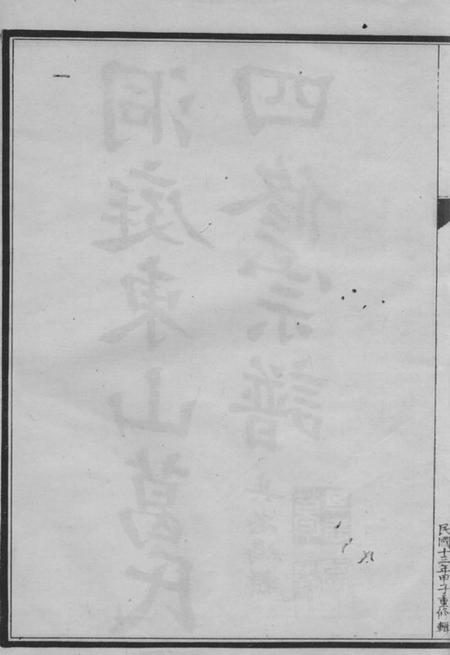 民國十三年甲子重修輯
洞庭東山葛氏
四修宗譜